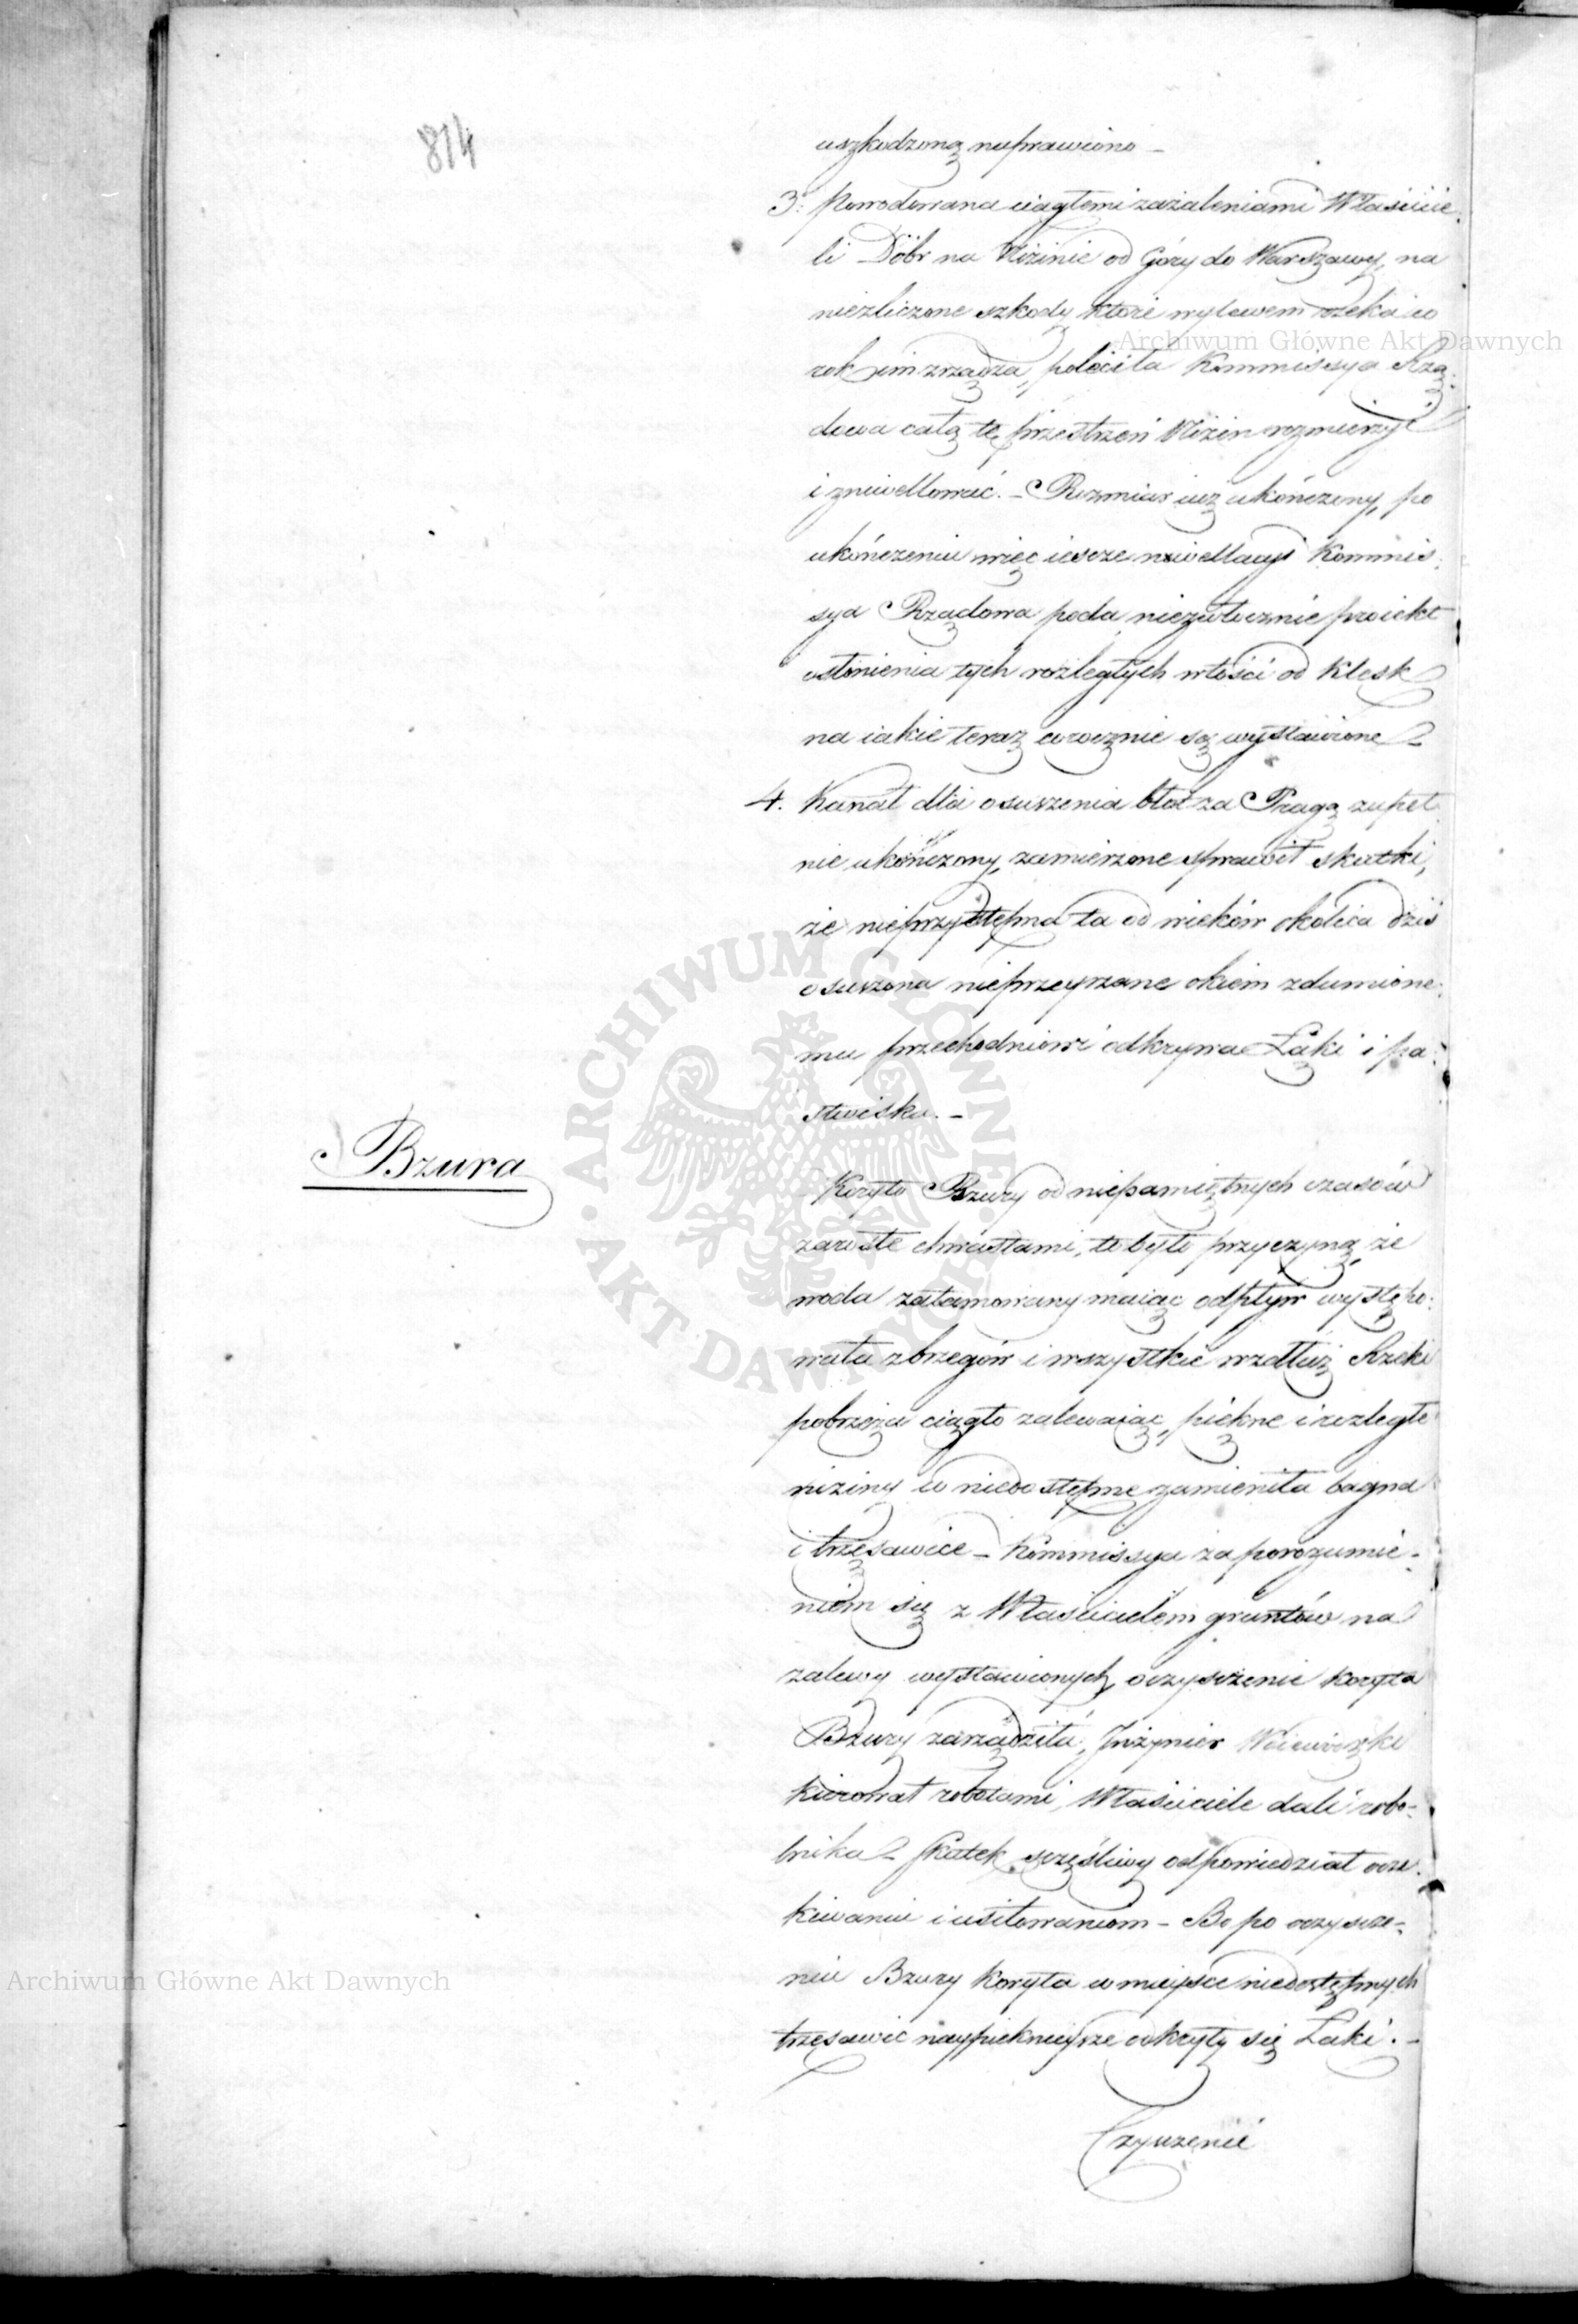 814
uszkodzoną naprawiono –
3. Powodowana ciągłemi zażaleniami Właścicie-
li Dóbr na Niżinie od Góry do Warszawy, na
niezliczone szkody które wylewem rzeka co
rok im zrządza, poleciła Kommissya Rzą-
dowa całą tę przestrzeń Niżin rozmierzyć
i zniwellować. – Rozmiar iuż ukończony, po
ukończeniu więc ieszcze niwellacyi Kommis-
sya Rządowa poda niezwłocznie proiekt
osłonienia tych rozległych włości od klęsk
na iakie teraz corocznie są wystawione –
4. Kanał dla osuszenia błot za Pragą zupeł-
nie ukończony, zamierzone sprawił skutki,
że nieprzystępna ta od wieków okolica dziś
osuszona nieprzeyrzane okiem zdumione-
mu przechodniowi odkrywa Łąki i pa-
stwiska. –
Bzura
Koryto Bzury od niepamiętnych czasów
zarosłe chwastami, to było przyczyną, że
woda zatamowany maiąc odpływ występo-
wała z brzegów i wszystkie wzdłuż Rzeki
pobrzeża ciągło zalewaiąc, piękne i rozległe
niziny w niedostępne zamieniła bagna
i trzęsawice – Kommissya za porozumie-
niem się z Właścicielem gruntów na
zalewy wystawionych, oczyszczenie koryta
Bzury zarządziła, Jnżynier Woiewódzki
kierował robotami, Właściciele dali robo-
tnika – Skutek szczęśliwy odpowiedział ocze-
kiwaniu i usiłowaniom – Bo po oczyszcze-
niu Bzury koryta w mieysce niedostępnych
trzęsawic naypięknieysze odkryły się Łąki. –
Czyszczenie
Archiwum Główne Akt Dawnych
Archiwum Główne Akt Dawnych
ARCHIWUM GŁÓWNE • AKT DAWNYCH •